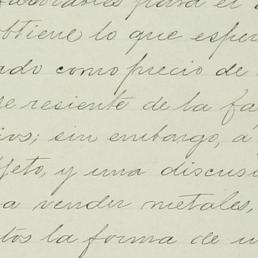 favorables para el
obtiene lo que esper
ado como precio de
se resiente de la fa
ivos; sin embargo, a
jeto, y una discusi
a vender metales,
tos la forma de u